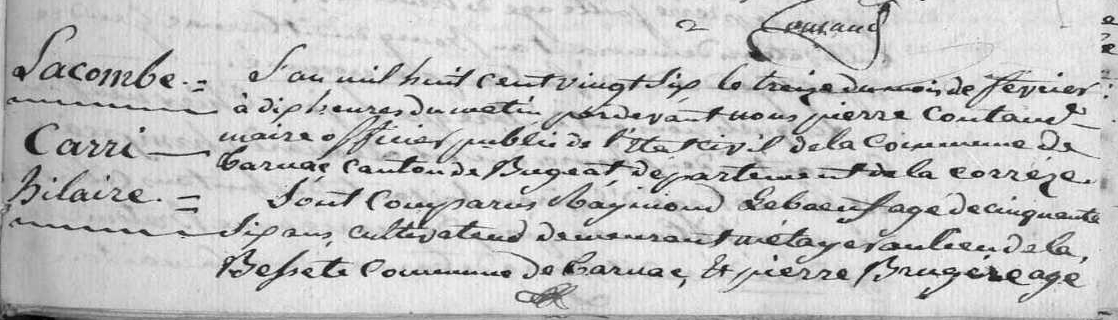 2 Coutaud
Lacombe = L'an mil huit cent vingt six le treize du mois de fevrier
à dix heures du matin par devant nous pierre Coutaud
Carri maire officier public de l'état civil de la Commune de
tarnac canton de Bugeat département de la corrèze.
hilaire = Sont Comparus Raymond Lebaeuf agé de cinquante
six ans, cultivateur demeurant métayer au lieu de la
Bessete Commune de tarnac, Et pierre Brugère agé